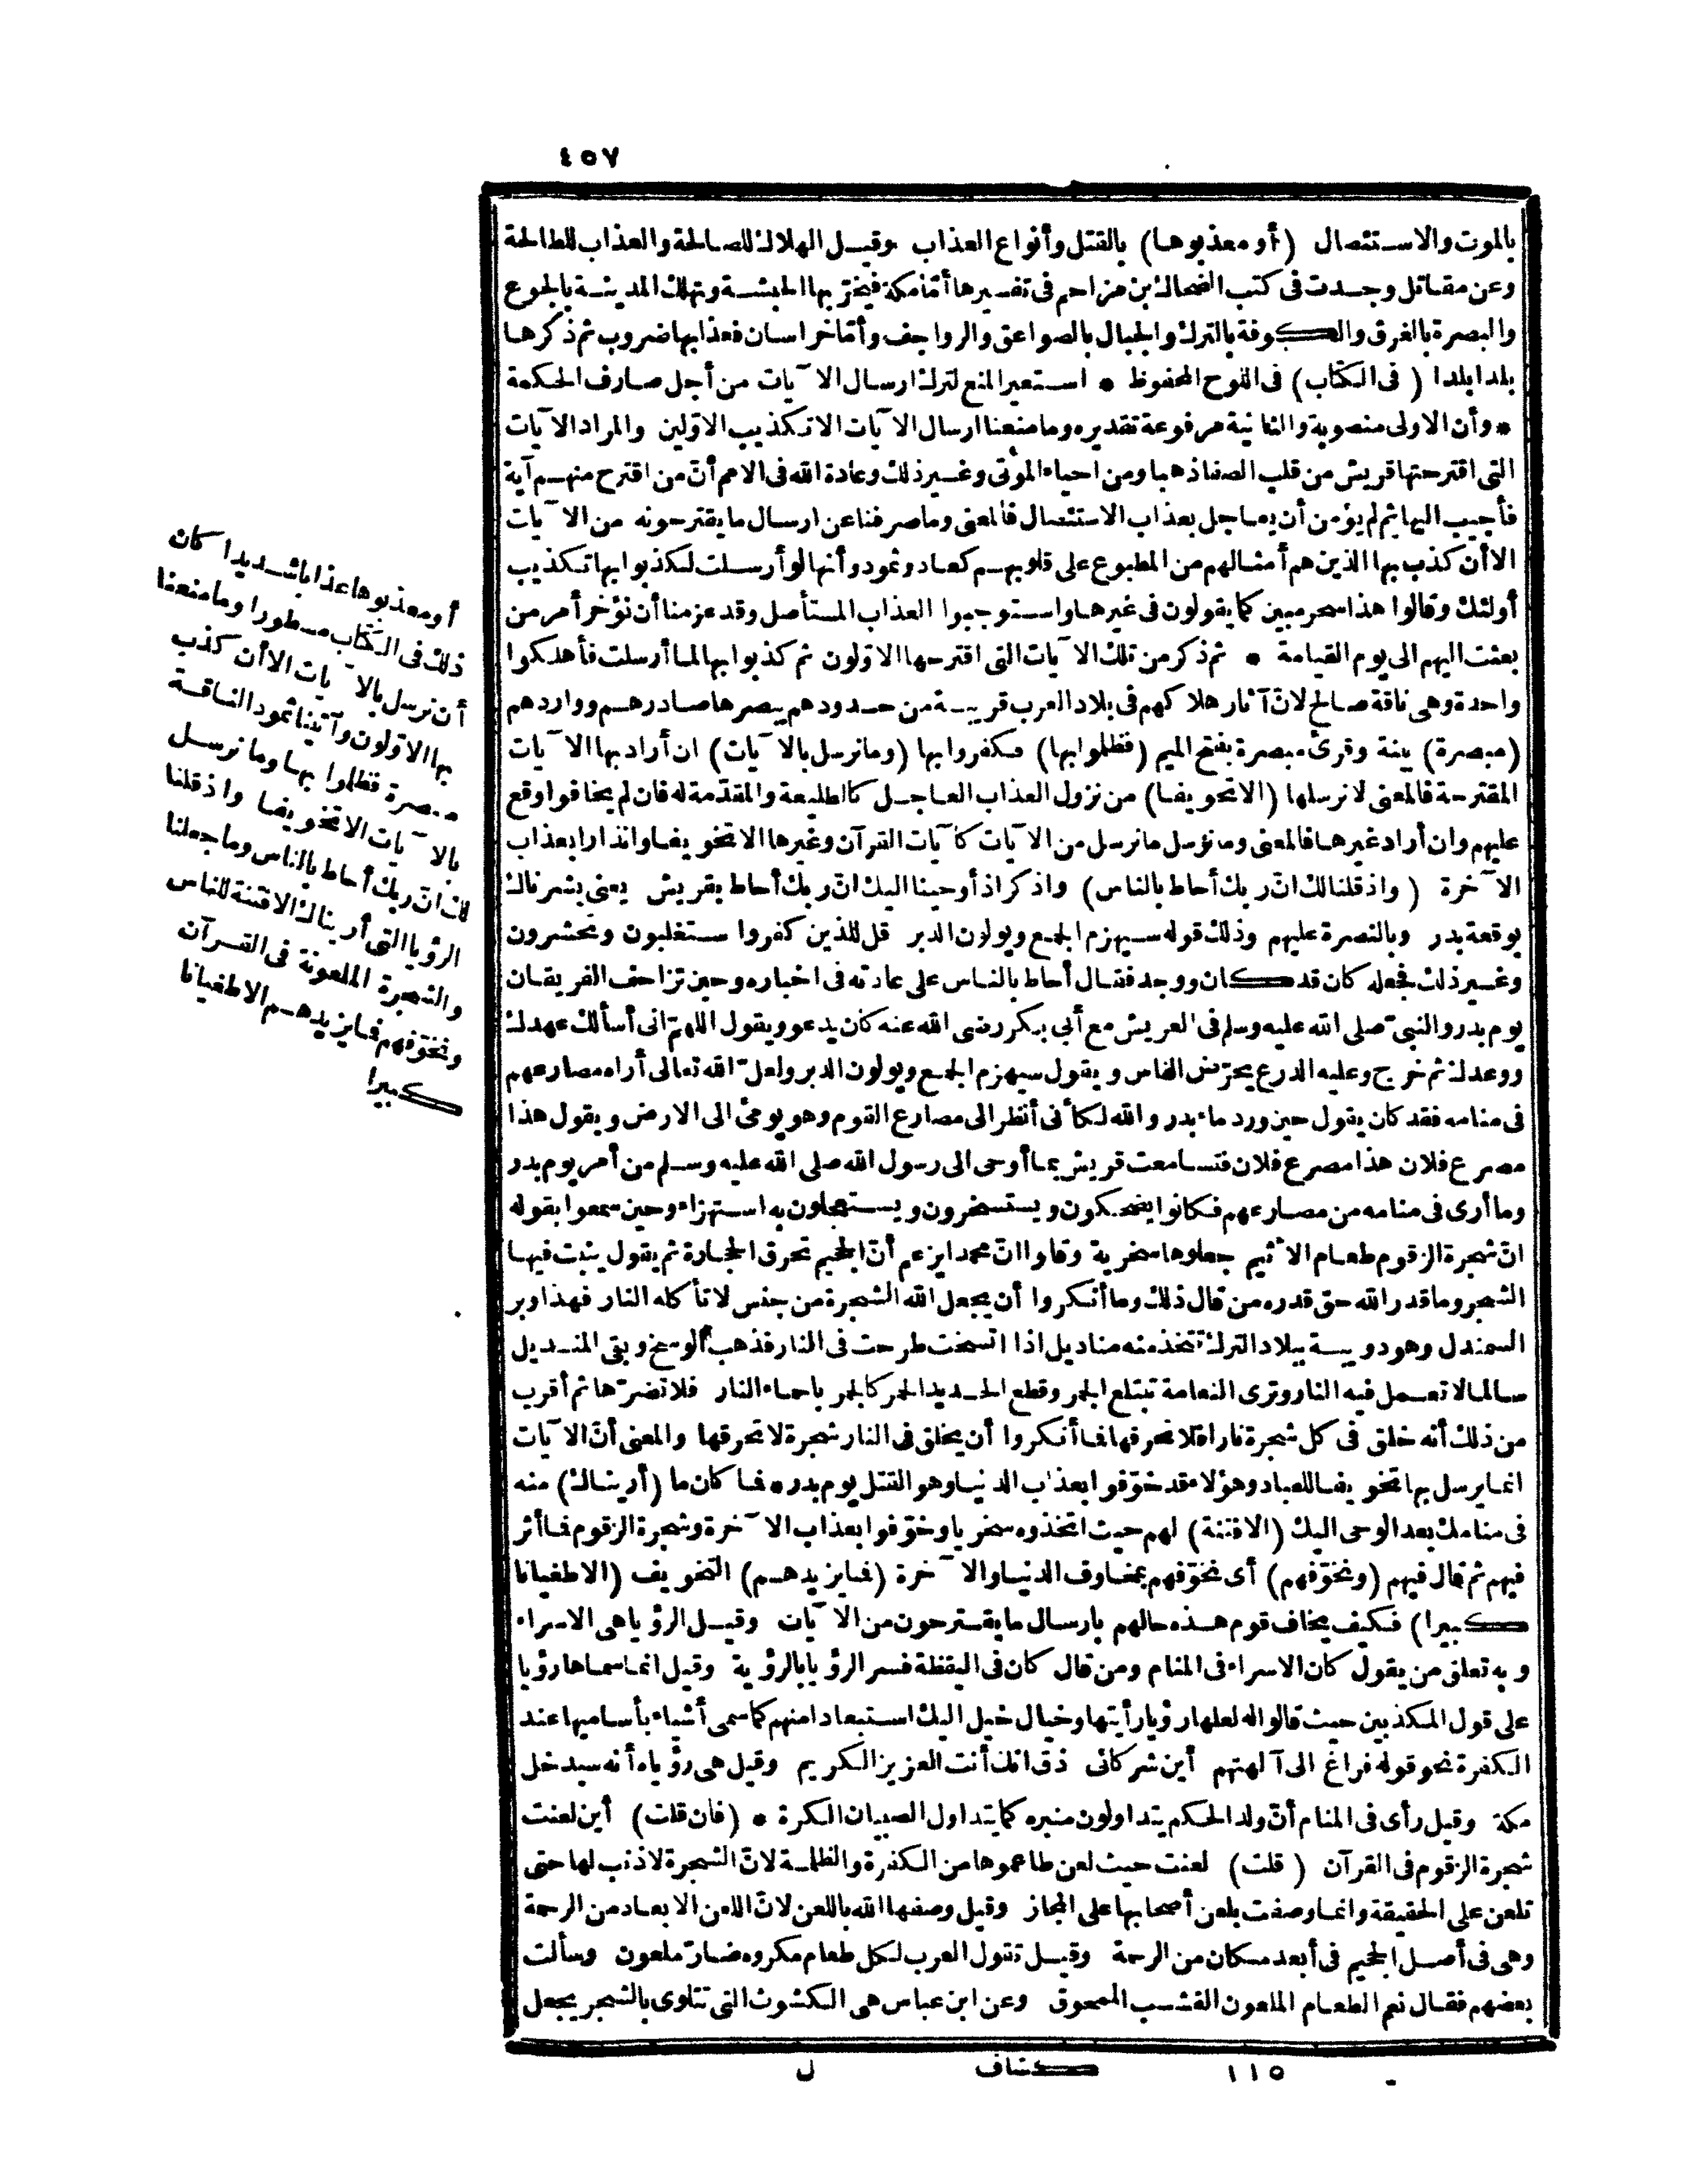 ٤٥٧
بالموت والاستئصال (أو معذبوها) بالقتل وأنواع العذاب وقيل الهلاك للصالحة والعذاب للطالحة
وعن مقاتل وجدت في كتب الضحاك بن مزاحم في تفسيرها أمّا مكة فيخرّبها الحبشة وتهلك المدينة بالجوع
والبصرة بالغرق والكوفة بالترك والجبال بالصواعق والرواجف وأمّا خراسان فعذابها ضروب ثم ذكرها
بلدا بلدا (في الكتاب) في اللوح المحفوظ * استعير المنع لترك ارسال الآيات من أجل صارف الحكمة
* وأن الاولى منصوبة والثانية مرفوعة تقديره وما منعنا ارسال الآيات الا تكذيب الاوّلين والمراد الآيات
التي اقترحتها قريش من قلب الصفا ذهبا ومن احياء الموتى وغير ذلك وعادة الله في الامم أنّ من اقترح منهم آية
فأجيب اليها ثم لم يؤمن أن يعاجل بعذاب الاستئصال فالمعنى وما صرفنا عن ارسال ما يقترحونه من الآيات
الا أن كذب بها الذين هم أمثالهم من المطبوع على قلوبهم كعاد وثمود وأنها لو أرسلت لكذبوا بها تكذيب
أولئك وقالوا هذا سحر مبين كما يقولون في غيرها واستوجبوا العذاب المستأصل وقد عزمنا أن نؤخر أمر من
بعثت اليهم الى يوم القيامة * ثم ذكر من تلك الآيات التي اقترحها الاوّلون ثم كذبوا بها لما أرسلت فأهلكوا
واحدة وهي ناقة صالح لانّ آثار هلاكهم في بلاد العرب قريبة من حدودهم يبصرها صادرهم وواردهم
(مبصرة) بينة وقرئ مبصرة بفتح الميم (فظلموا بها) فكفروا بها (وما نرسل بالآيات) ان أراد بها الآيات
المقترحة فالمعنى لا نرسلها (الا تخويفا) من نزول العذاب العاجل كالطليعة والمقدّمة له فان لم يخافوا وقع
عليهم وان أراد غيرها فالمعنى وما نرسل ما نرسل من الآيات كآيات القرآن وغيرها الا تخويفا وانذارا بعذاب
الآخرة (واذ قلنا لك انّ ربك أحاط بالناس) واذكر اذ أوحينا اليك انّ ربك أحاط بقريش يعني بشرناك
بوقعة بدر وبالنصرة عليهم وذلك قوله سيهزم الجمع ويولون الدبر قل للذين كفروا ستغلبون وتحشرون
وغير ذلك فجعله كان قد كان ووجد فقال أحاط بالناس على عادته في اخباره وحين تزاحف الفريقان
يوم بدر والنبيّ صلى الله عليه وسلم في العريش مع أبي بكر رضي الله عنه كان يدعو ويقول اللهمّ اني أسألك عهدك
ووعدك ثم خرج وعليه الدرع يحرّض الناس ويقول سيهزم الجمع ويولون الدبر ولعلّ الله تعالى أراه مصارعهم
في منامه فقد كان يقول حين ورد ماء بدر والله لكأني أنظر الى مصارع القوم وهو يومئ الى الارض ويقول هذا
مصرع فلان هذا مصرع فلان فتسامعت قريش بما أوحى الى رسول الله صلى الله عليه وسلم من أمر يوم بدر
وما أرى في منامه من مصارعهم فكانوا يضحكون ويستسخرون ويستعجلون به استهزاء وحين سمعوا بقوله
انّ شجرة الزقوم طعام الاثيم جعلوها سخرية وقالوا انّ محمدا يزعم أنّ الجحيم تحرق الحجارة ثم يقول ينبت فيها
الشجر وما قدر الله حق قدره من قال ذلك وما أنكروا أن يجعل الله الشجرة من جنس لا تأكله النار فهذا وبر
السمندل وهو دويبة ببلاد الترك تتخذ منه مناديل اذا اتسخت طرحت في النار فذهب الوسخ وبقي المنديل
سالما لا تعمل فيه النار وترى النعامة تبتلع الجمر وقطع الحديد الحمر كالجمر باحماء النار فلا تضرّها ثم أقرب
من ذلك أنه خلق في كل شجرة نارا فلا تحرقها فما أنكروا أن يخلق في النار شجرة لا تحرقها والمعنى أنّ الآيات
انما يرسل بها تخويفا للعباد وهؤلاء قد خوّفوا بعذاب الدنيا وهو القتل يوم بدر * فما كان ما (أريناك) منه
في منامك بعد الوحي اليك (الا فتنة) لهم حيث اتخذوه سخريا وخوّفوا بعذاب الآخرة وشجرة الزقوم فما أثر
فيهم ثم قال فيهم (ونخوّفهم) أي نخوّفهم بمخاوف الدنيا والآخرة (فما يزيدهم) التخويف (الا طغيانا
كبيرا) فكيف يخاف قوم هذه حالهم بارسال ما يقترحون من الآيات وقيل الرؤيا هي الاسراء
وبه تعلق من يقول كان الاسراء في المنام ومن قال كان في اليقظة فسر الرؤيا بالرؤية وقيل انما سماها رؤيا
على قول المكذبين حيث قالوا له لعلها رؤيا رأيتها وخيال خيل اليك استبعادا منهم كما سمى أشياء بأساميها عند
الكفرة نحو قوله فراغ الى آلهتهم أين شركائي ذق انك أنت العزيز الكريم وقيل هي رؤياه أنه سيدخل
مكة وقيل رأى في المنام أنّ ولد الحكم يتداولون منبره كما يتداول الصبيان الكرة * (فان قلت) أين لعنت
شجرة الزقوم في القرآن (قلت) لعنت حيث لعن طاعموها من الكفرة والظلمة لانّ الشجرة لا ذنب لها حتى
تلعن على الحقيقة وانما وصفت بلعن أصحابها على المجاز وقيل وصفها الله باللعن لانّ اللعن الابعاد من الرحمة
وهي في أصل الجحيم في أبعد مكان من الرحمة وقيل تقول العرب لكل طعام مكروه ضارّ ملعون وسألت
بعضهم فقال نعم الطعام الملعون القشب الممحوق وعن ابن عباس هي الكشوث التي تتلوى بالشجر يجعل
أو معذبوها عذابا شديدا كان
ذلك في الكتاب مسطورا وما منعنا
أن نرسل بالآيات الا أن كذب
بها الاوّلون وآتينا ثمود الناقة
مبصرة فظلموا بها وما نرسل
بالآيات الا تخويفا واذ قلنا
لك انّ ربك أحاط بالناس وما جعلنا
الرؤيا التي أريناك الا فتنة للناس
والشجرة الملعونة في القرآن
ونخوّفهم فما يزيدهم الا طغيانا
كبيرا
١١٥ كشاف ل